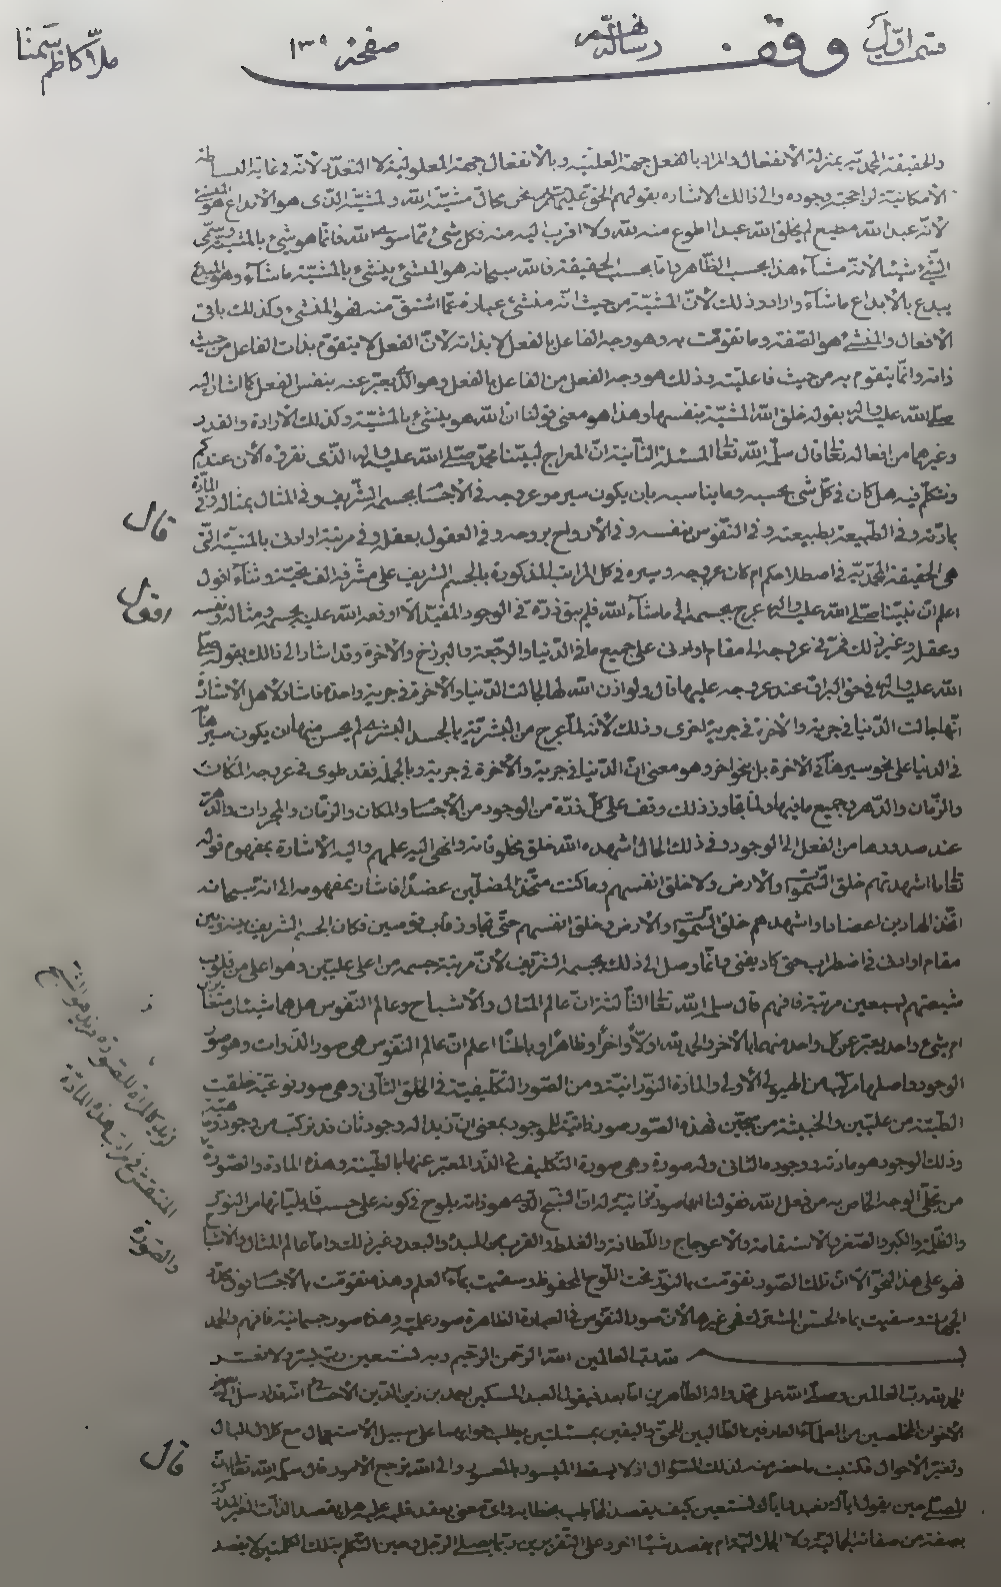 قسمت اوّل
وقف
رسالة
صفحة ١٣٥
ملّا كاظم سمنا
والحقيقة المحمّديّة بمنزلة الانفعال والمراد بالفعل جهة العليّة وبالانفعال جهة المعلوليّة لا التعدّد لانّه فى غاية البساطة
الامكانيّة لرا جحيّة وجوده والى ذالك الاشارة بقولهم الحقّ عليهم السّلم نحن محالّ مشيّة اللّه والمشيّة الّذى هو الابداع هو
لانّه عبد اللّه مطيع لم يخلق اللّه عبدا اطوع منه للّه ولا اقرب اليه منه فكلّ شىء ممّا سوى اللّه فانّما هو شىء بالمشيّة وسمّى
الشّىء شيئا لانّه مشاء هذا بحسب الظّاهر وامّا بحسب الحقيقة فاللّه سبحانه هو المنشئ ينشئ بالمشيّة ما شاء وهو المبدع
يبدع بالابداع ما شاء واراد وذلك لانّ المشيّة من حيث انّه منشئ عبارة عمّا اشتقّ منه فهو المنشئ وكذلك باقى
الافعال والمنشئ هو الصّفة وما تقوّمت به وهو وجه الفاعل بالفعل لا بذاته لانّ الفعل لا يتقوّم بذات الفاعل من حيث
ذاته وانّما يتقوّم به من حيث فاعليّته وذلك هو وجه الفعل من الفاعل بالفعل وهو الّذى يعبّر عنه بنفس الفعل كما اشار اليه
صلّى اللّه عليه وآله بقوله خلق اللّه المشيّة بنفسها وهذا هو معنى قولنا انّ اللّه هو ينشئ بالمشيّة وكذلك الارادة والقدر
وغيرهما من افعاله تعالى قال سلّمه اللّه تعالى المسئلة الثّانية انّ المعراج لنبيّنا محمّد صلّى اللّه عليه وآله الّذى نقرّ به الان عندكم
ونتكلّم فيه هل كان فى كلّ شىء بحسبه وما يناسبه بان يكون سيره وعروجه فى الاجسام بجسمه الشّريف وفى المثال بمثاله وفى المادّة
بمادّته وفى الطّبيعة بطبيعته وفى النّفوس بنفسه وفى الارواح بروحه وفى العقول بعقله وفى مرتبة او ادنى بالمشيّة الّتى
قال
هى الحقيقة المحمّديّة فى اصطلاحكم ام كان عروجه وسيره فى كلّ المراتب المذكورة بالجسم الشّريف على مشرّفه الف تحيّة وثناء اقول
اقول
اعلم انّ نبيّنا صلّى اللّه عليه وآله عرج بجسمه الى ما شاء اللّه فلم يبق ذرّة فى الوجود المقيّد الّا اوقفه اللّه عليه بجسمه ومثاله ونفسه
وعقله وغير ذلك فمرّ فى عروجه الى مقام او ادنى على جميع ما فى الدّنيا والرّجعة والبرزخ والاخرة وقد اشار الى ذالك بقوله صلّى
اللّه عليه وآله فى حقّ البراق عند عروجه عليها قال ولو اذن اللّه لها لجالت الدّنيا والاخرة فى جرية واحدة فاشار لاهل الاشارة
انّها جالت الدّنيا فى جرية والاخرة فى جرية اخرى وذلك لانّه لمّا عرج من البشريّة بالجسد البشرى لم يحسن منها ان يكون سيرها
فى الدنيا على نحو سيرها فى الاخرة بل بنحو اخر وهو معنى انّ الدّنيا فى جرية والاخرة فى جرية وبالجملة فقد طوى فى عروجه المكان
والزّمان والدّهر وجميع ما فيها ولمّا تجاوز ذلك وقف على كلّ ذرّة من الوجود من الاجسام والمكان والزّمان والمجردات والدّهر
عند صدورها من الفعل الى الوجود وفى ذلك الحال اشهده اللّه خلق مخلوقاته وانهى اليه علمهم واليه الاشارة بمفهوم قوله
تعالى ما اشهدتهم خلق السّموات والارض ولا خلق انفسهم وما كنت متّخذ المضلّين عضدًا فاشار بمفهومه الى انّه سبحانه
اتّخذ الهادين اعضادا واشهدهم خلق السّموات والارض وخلق انفسهم حتّى تجاوز قاب قوسين فكان الجسم الشّريف
مقام او ادنى فى اضطراب حتى كاد يفنى وانّما وصل الى ذلك بجسمه الشّريف لانّ مرتبة جسمه من اعلى علّيّين وهو اعلى من قلوب
شيعتهم بسبعين مرتبة فافهم قال سلمه اللّه تعالى الثّالثة انّ عالم المثال والاشباح وعالم النّفوس هل هما شيئان متغايران
ام شىء واحد يعبّر عن كلّ واحد منهما بالاخر والحمد للّه اولًا واخرًا وظاهرًا وباطنًا اعلم انّ عالم النّفوس هى صور الذّوات وهو صور
الوجود واصلها مركّبة من الهيولى الاولى والمادّة النّورانيّة ومن الصّور التّكليفيّة فى الخلق الثّانى وهى صور نوعيّة خلقت
الطيّبة من علّيّين والخبيثة من سجّين فهذه الصّور صور ذاتيّة للوجود بمعنى انّ زيدا له وجود ثان قد تركّب من وجود وماهيّة
وذلك الوجود هو مادّته ووجوده الثّانى وله صورة وهى صورة التّكليف فى الذّر المعبّر عنها بالطّينة وهذه المادّة والصّورة
من تجلّى الوجه الخاص به من فعل اللّه فقولنا انها صور ذاتيّة له انّ الشّبح الّذى هو ذاته يلوح فى كونه على حسب قابليّاتها من النّور
والظّلمة والكبر والصّغر والاستقامة والاعوجاج واللّطافة والغلظ والقرب من المبدأ والبعد وغير ذلك وامّا عالم المثال والاشباح
فهو على هذا النّحو الّا انّ تلك الصّور تقوّمت بالنّور تحت اللّوح المحفوظ وسقيت بماء العلم وهذه تقوّمت بالاجسام فوق محدّد
الجهات وسقيت بماء الحسّ المشترك فهى غيرها لانّ صور النّفوس فى العبارة الظاهرة صور علميّة وهذه صور جسمانيّة فافهم والحمد
للّه ربّ العالمين بسم اللّه الرّحمن الرّحيم وبه نستعين ربّ يسّر ولا تعسّر
الحمد للّه ربّ العالمين وصلّى اللّه على محمّد وآله الطّاهرين امّا بعد فيقول العبد المسكين احمد بن زين الدّين الاحسائى انّه قد ارسل الىّ بعض
الاخوان المخلصين من العلماء العارفين الطّالبين للحقّ واليقين بمسئلتين يطلب جوابهما على سبيل الاستعجال مع كلال البال
وتغيّر الاحوال فكتبت ما حضر منه لذلك السّؤال اذ لا يسقط الميسور بالمعسور والى اللّه ترجع الامور قال سلّمه اللّه تعالى انّ
قال
المصلّى حين يقول ايّاك نعبد وايّاك نستعين كيف يقصد المخاطب بخطابه واىّ معنى يعقد قلبه عليه هل يقصد الذّات الغير المدركة
بصفة من صفاته الجماليّة ولا الجلاليّة ام يقصد شيئا اخر وعلى التّقديرين ربّما يصلّى الرّجل وحين التّكلم بتلك الكلمتين لا يقصد